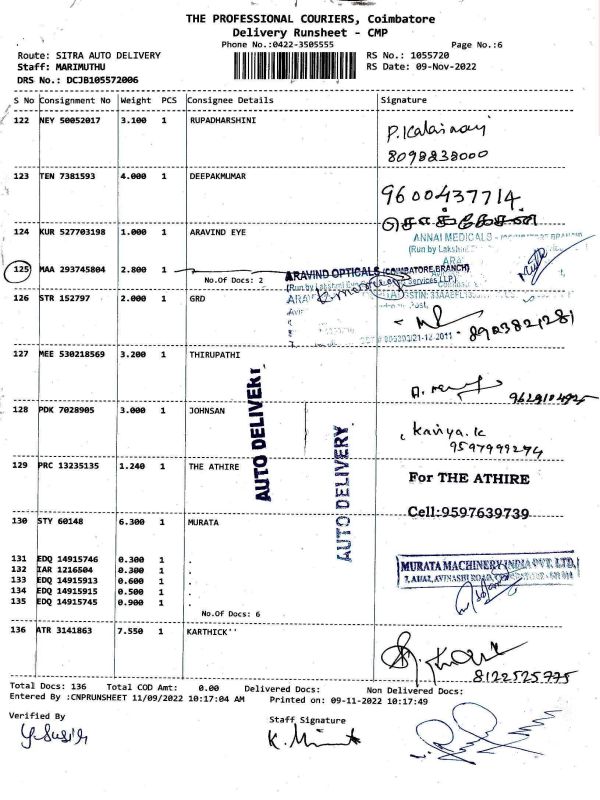 THE PROFESSIONAL COURIERS, Coimbatore
Delivery Runsheet - CMP
Phone No.:0422-3505555
Page No.:6
Route: SITRA AUTO DELIVERY
RS No.: 1055720
Staff: MARIMUTHU
RS Date: 09-Nov-2022
DRS No.: DCJB105572006
S No Consignment No Weight PCS Consignee Details Signature
122 NEY 50052017 3.100 1 RUPADHARSHINI
8098238000
123 TEN 7381593 4.000 1 DEEPAKMUMAR
9600437714.
124 KUR 527703198 1.000 1 ARAVIND EYE
ANNAI MEDICALS
(Run by Lakshmi
125 MAA 293745804 2.800 1
No.Of Docs: 2
ARAVIND OPTICALS (COIMBATORE BRANCH)
(Run by Lakshmi Services LLP)
126 STR 152797 2.000 1 GRD
8903821281
127 MEE 530218569 3.200 1 THIRUPATHI
128 PDK 7028905 3.000 1 JOHNSAN
Kaviya.k
9597999274
AUTO DELIVERY
AUTO DELIVERY
129 PRC 13235135 1.240 1 THE ATHIRE
For THE ATHIRE
Cell:9597639739
130 STY 60148 6.300 1 MURATA
131 EDQ 14915746 0.300 1 .
132 IAR 1216504 0.300 1 .
133 EDQ 14915913 0.600 1 .
134 EDQ 14915915 0.500 1 .
135 EDQ 14915745 0.900 1 .
No.Of Docs: 6
MURATA MACHINERY INDIA PVT. LTD.
136 ATR 3141863 7.550 1 KARTHICK''
8122525775
Total Docs: 136 Total COD Amt: 0.00 Delivered Docs: Non Delivered Docs:
Entered By :CNPRUNSHEET 11/09/2022 10:17:04 AM Printed on: 09-11-2022 10:17:49
Verified By
Staff Signature